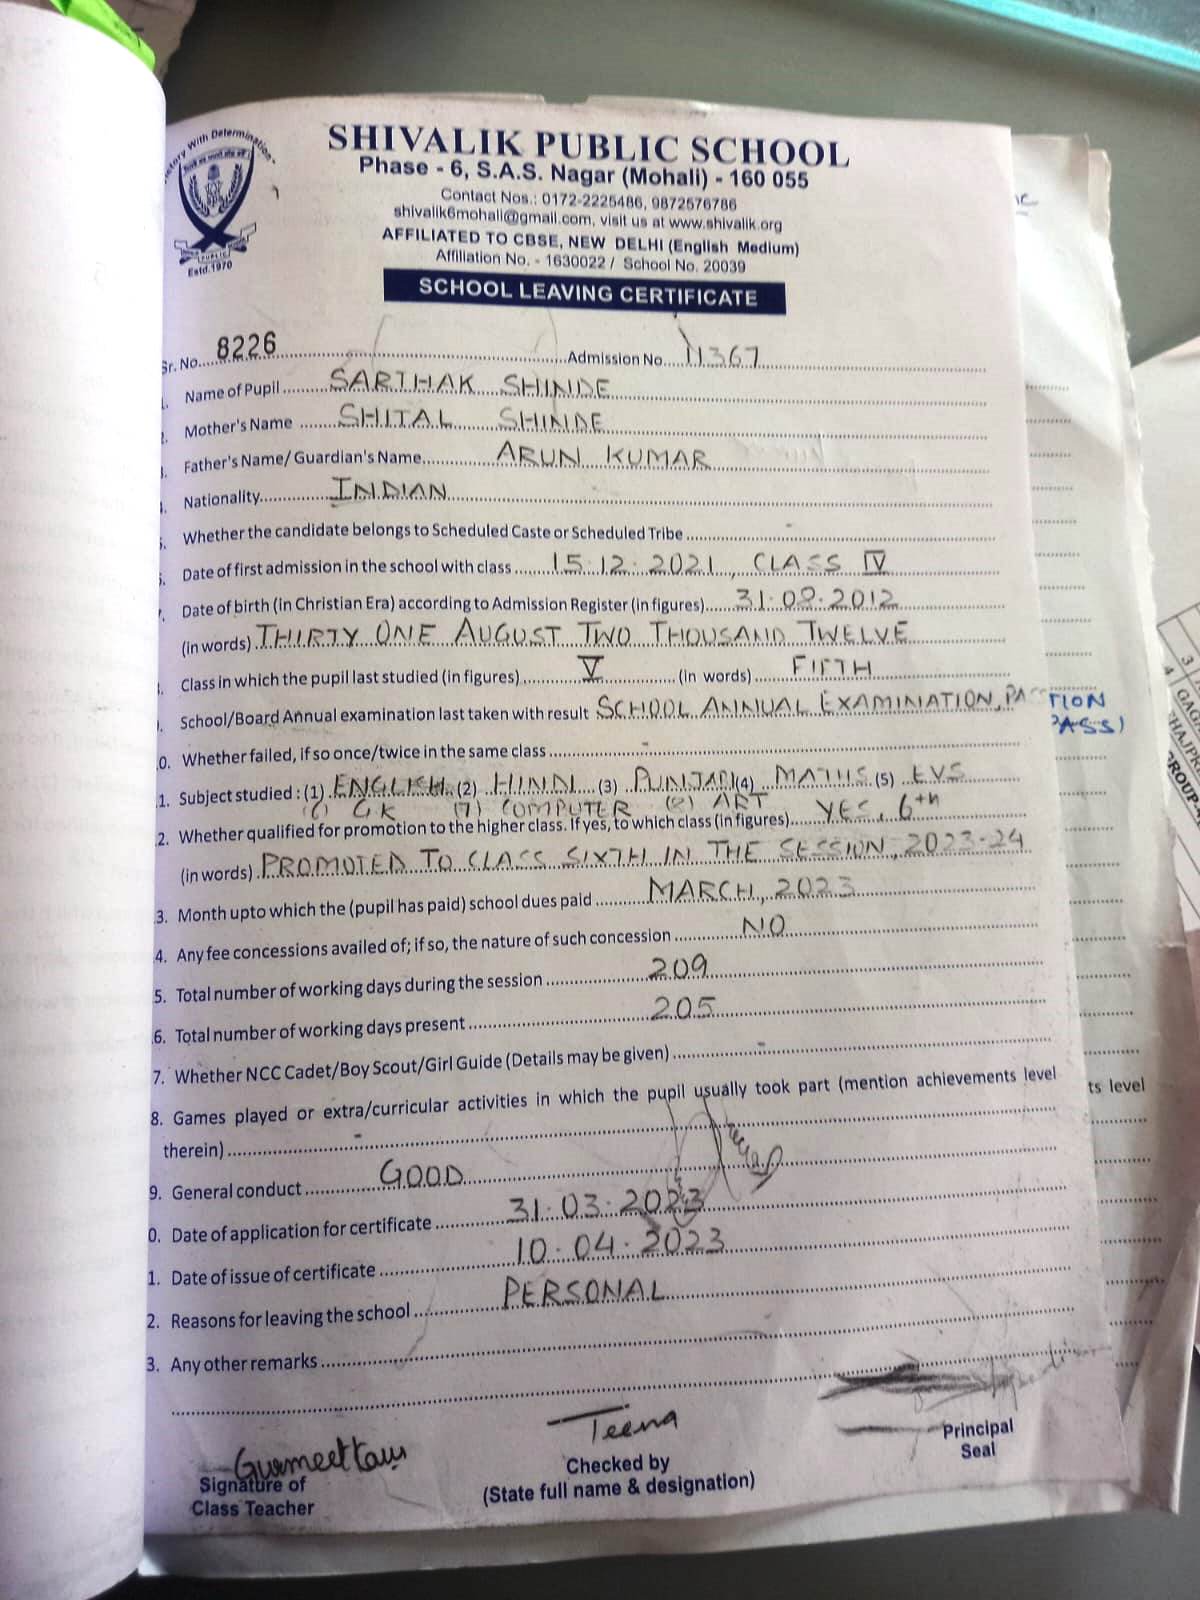 Victory With Determination
Estd.1970
SHIVALIK PUBLIC SCHOOL
Phase - 6, S.A.S. Nagar (Mohali) - 160 055
Contact Nos.: 0172-2225486, 9872576786
shivalik6mohali@gmail.com, visit us at www.shivalik.org
AFFILIATED TO CBSE, NEW DELHI (English Medium)
Affiliation No. - 1630022 / School No. 20039
SCHOOL LEAVING CERTIFICATE
Sr. No. 8226 Admission No. 11367
Name of Pupil SARTHAK SHINDE
Mother's Name SHITAL SHINDE
Father's Name/ Guardian's Name ARUN KUMAR
Nationality INDIAN
Whether the candidate belongs to Scheduled Caste or Scheduled Tribe -
Date of first admission in the school with class 15.12.2021, CLASS IV
Date of birth (in Christian Era) according to Admission Register (in figures) 31.08.2012
(in words) THIRTY ONE AUGUST TWO THOUSAND TWELVE
Class in which the pupil last studied (in figures) V (in words) FIFTH
School/Board Annual examination last taken with result SCHOOL ANNUAL EXAMINATION,
0. Whether failed, if so once/twice in the same class -
1. Subject studied : (1) ENGLISH (2) HINDI (3) PUNJABI (4) MATHS (5) EVS
(6) GK (7) COMPUTER (8) ART
2. Whether qualified for promotion to the higher class. If yes, to which class (in figures) YES, 6th
(in words) PROMOTED TO CLASS SIXTH IN THE SESSION, 2023-24
3. Month upto which the (pupil has paid) school dues paid MARCH, 2023
4. Any fee concessions availed of; if so, the nature of such concession NO
5. Total number of working days during the session 209
6. Total number of working days present 205
7. Whether NCC Cadet/Boy Scout/Girl Guide (Details may be given) -
8. Games played or extra/curricular activities in which the pupil usually took part (mention achievements level
ts level
therein) -
9. General conduct GOOD
0. Date of application for certificate 31.03.2023
1. Date of issue of certificate 10.04.2023
2. Reasons for leaving the school PERSONAL
3. Any other remarks
Teena
Gurmeet Kaur
Signature of
Class Teacher
Checked by
(State full name & designation)
Principal
Seal